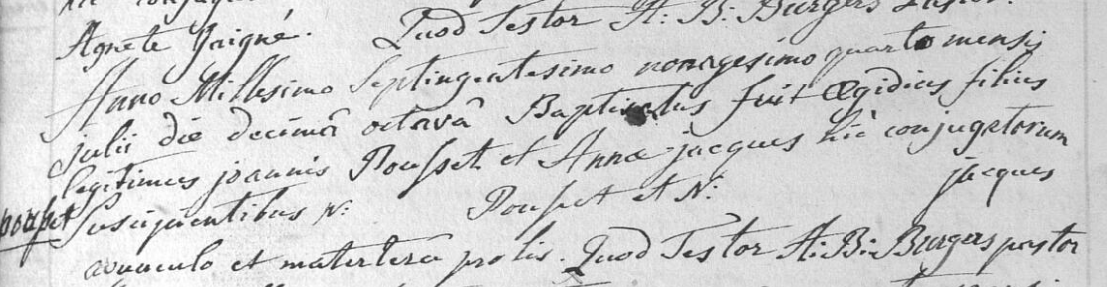 Agnete Gaigné. Quod Testor H: B: Burgers Pastor.
Anno Millesimo Septingentesimo nonagesimo quarto mensis
julii die decimâ octavâ Baptizatus fuit Ægidius filius
legitimus joannis Pousset et Annæ jacques hic conjugatorum
pousset Suscipientibus N: Pousset et N: jacques
avunculo et matertera prolis. Quod Testor H: B: Burgers pastor